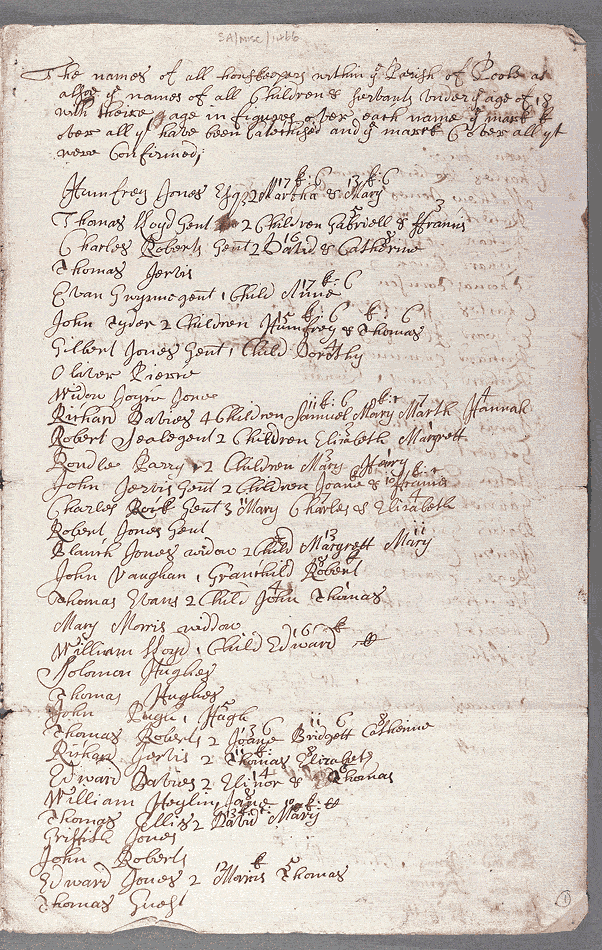 SA/MISC/1466
The names of all houskeepers within ye Parish of Poole as
alsoe ye names of all Children & servants under ye age of 18
with theire age in figures over each name ye mark k
over all yt have been Catechised and ye marck C over all yt
were Confirmed;
17 k: 6 13 k: 6
Humfrey Jones Esq 2 Martha & Mary
5 3
Thomas lloyd Gent 2 Children Gabriell & ffrancis
16 8
Charles Roberts Gent 2 David & Catherine
Thomas Jervis
17 k: 6
Evan Gwynne gent 1 Child Anne
k: 6 k: 6
John Tyder 2 Children Humfrey & Thomas
Gilbert Jones Gent 1 Child Dorothy
Oliver Pierce
Widow Joyce Jones
11 k: 6 9 k: 7 4
Richard Davies 4 Children Samuel Mary Marth Hannah
Robert gent 2 Children Elizabeth Margrett
Rondle Parry 2 Children Mary Henry
John Jervis Gent 2 Children Joane & ffrancis
11 7 4
Charles Gent 3 Mary Charles & Elizabeth
Robert Jones Gent
13 11
Blanch Jones widow 2 Child Margrett Mary
8
John Vaughan 1 Granchild Robert
4
Thomas Evans 2 Child John Thomas
Mary Morris widdow
16 k
William lloyd 1 Child Edward
Solomon Hughes
Thomas Hughes
5
John Pugh 1 Hugh
6 11 6 8
Thomas Roberts 2 Joane Bridgett Catherine
11 k: 8
Richard Jervis 2 Thomas Elizabeth
14 8
Edward Davies 2 Elinor & Thomas
William Heylin Jane
13 k: 10 k:
Thomas Ellis 2 David Mary
Griffith Jones
John Roberts
12 k 5
Edward Jones 2 Morris Thomas
Thomas Guest
1